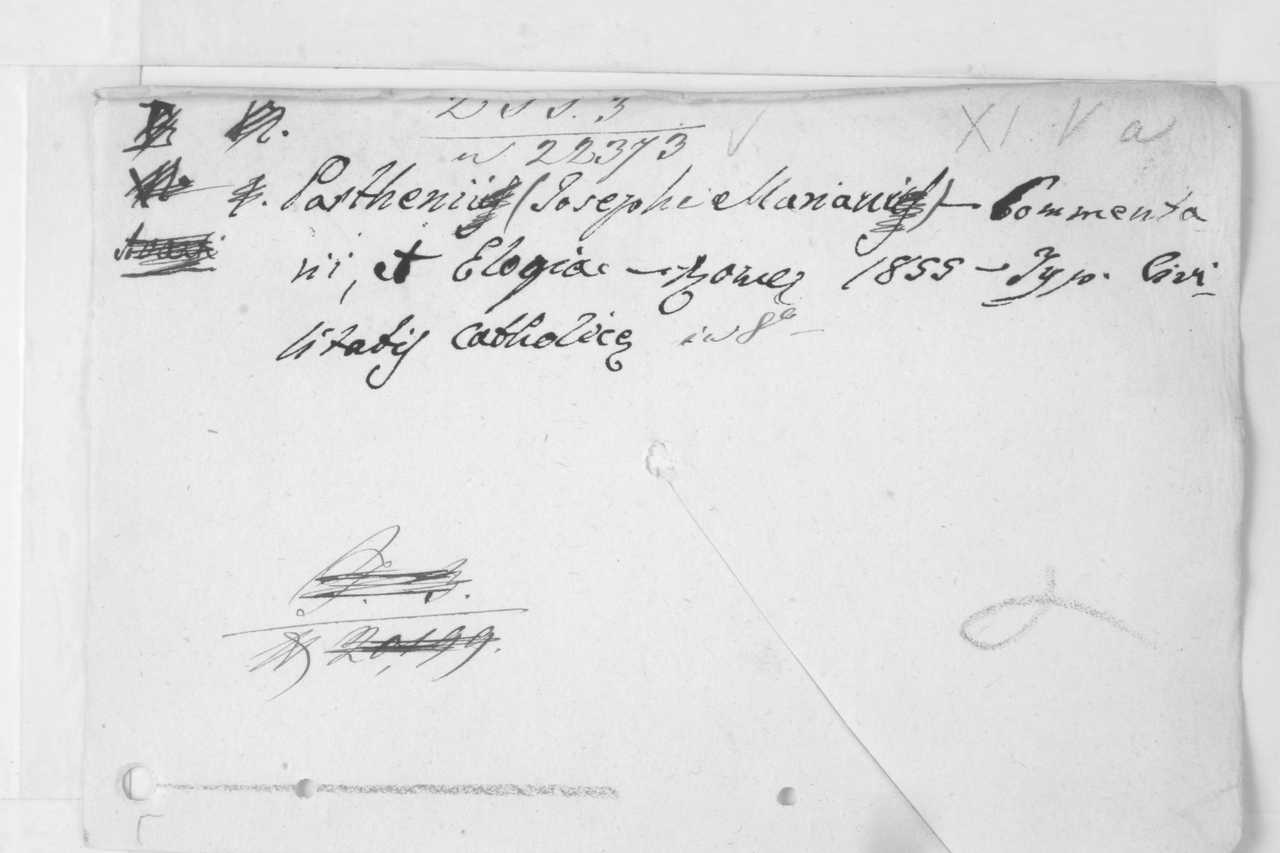 n 22373
XI V a
Partheni (Josephi Mariani) – Commenta
rii, et Elogia – Romę 1855 – Typ. Civi
litatis Catholicę in 8°
20,199.